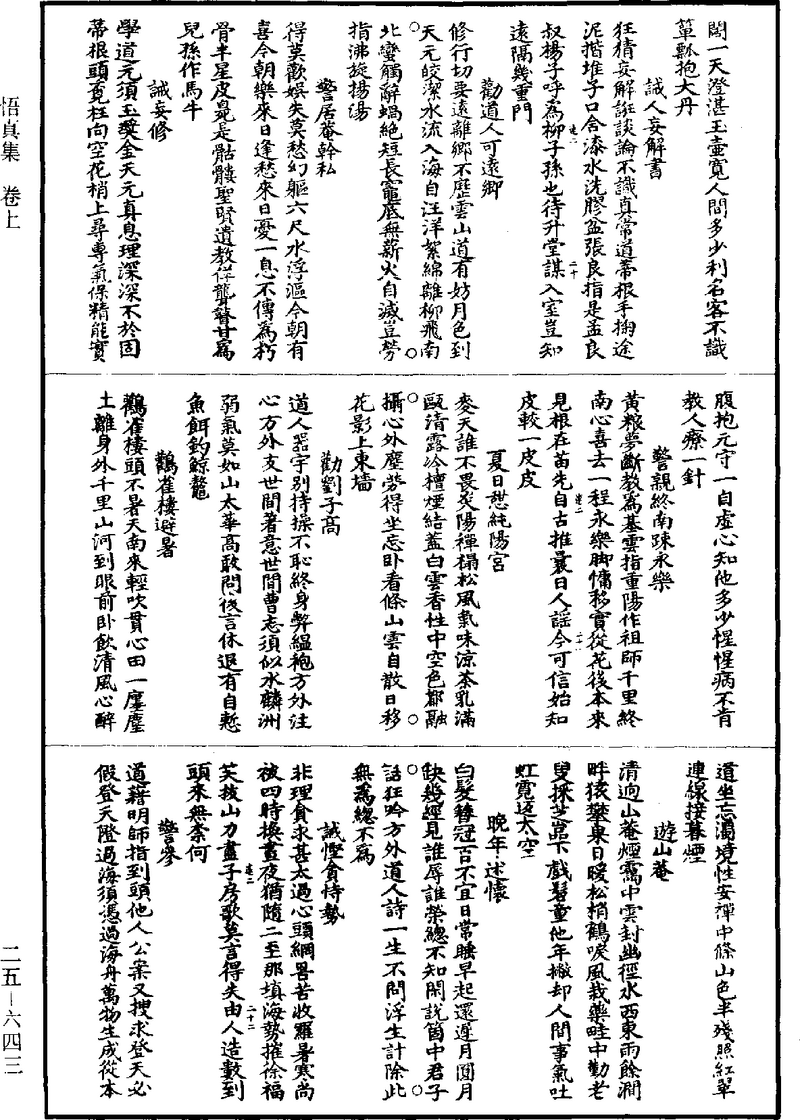 闊一天澄湛玉壺寬人間多少利名客不識
簞瓢抱大丹
誡人妄解書
狂猜妄解誑談論不識真常道蒂根手搊途
泥揩堆子口含漆水洗膠盆張良指是孟良
叔楊子呼為柳子孫也待升堂謀入室豈知
遠隔幾重門
勸道人可遠鄉
修行切要遠離鄉不歷雲山道有妨月色到
天元皎潔水流入海自汪洋絮綿離柳飛南
北蠻觸辭蝸絕短長竈底無薪火自滅豈勞
指沸旋揚湯
警居菴幹私
得莫歡娛失莫愁幻軀六尺水浮漚今朝有
喜今朝樂來日逢愁來日憂一息不傳為朽
骨半星皮臭是骷髏聖賢遺教佯聾瞽甘為
兒孫作馬牛
誡妄修
學道元須玉獎金天元真息理深深不於固
蒂根頭覓枉向空花梢上尋專氣保精能實
腹抱元守一自虛心知他多少惺惺病不肯
教人療一針
警親終南踈永樂
黃粮夢斷教為基雲指重陽作祖師千里終
南心喜去一程永樂脚慵移實從花後本來
見根在苗先自古推曩日人謡今可信始知
皮較一皮皮
夏日憇純陽宮
麥天誰不畏炎陽禪榻松風氣味涼茶乳滿
甌清露冷檀煙結蓋白雲香性中空色都融
攝心外塵勞得坐忘卧看條山雲自散日移
花影上東墻
勸劉子高
道人器宇別持操不恥終身弊緼袍方外注
心方外友世間著意世間曹志須似水麟洲
弱氣莫如山太華高敢問後言休退有自慙
魚餌釣鯨鼇
鸛雀樓避暑
鸛雀樓頭不暑天南來輕吹貫心田一廛塵
土離身外千里山河到眼前卧飲清風心醉
道坐忘濁境性安禪中條山色半殘照紅翠
連線接暮煙
遊山菴
清逈山菴煙靄中雲封幽徑水西東雨餘澗
畔猿攀東日暖松梢鶴唳風栽藥畦中勤老
叟採芝嵓下戲髫童他年撇却人間事氣吐
虹霓迈太空
晚年述懷
白髮簪冠百不宜日常睡早起還遲月圓月
缺幾經見誰辱誰榮總不知閑說箇中君子
話狂吟方外道人詩一生不問浮生計除此
無為總不為
誡慳貪恃勢
非理貪求甚太過心頭綱罟苦收羅暑寒尚
被四時換晝夜猶隨二至那填海勢摧徐福
笑拔山力盡子房歌莫言得失由人造數到
頭來無柰何
警參
道藉明師指到頭他人公案又搜求登天必
假登天隥過海須憑過海舟萬物生成從本
悟真集　卷上
二五－六四三